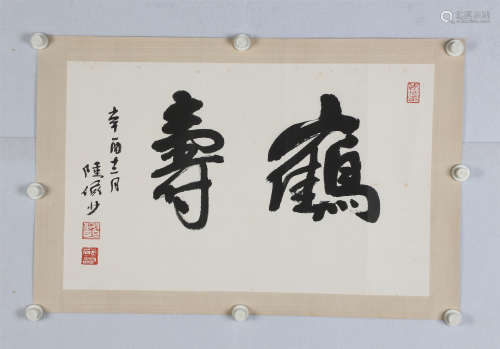 鶴壽
辛酉十二月
陸儼少